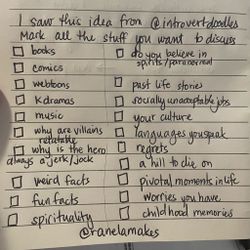 I saw this idea from @introvertdoodles
Mark all the stuff you want to discuss
books
comics
webtoons
kdramas
music
why are villains relatable
why is the hero always a jerk/jock
weird facts
fun facts
spirituality
do you believe in spirits/paranormal
past life stories
socially unacceptable jobs
your culture
languages you speak
regrets
a hill to die on
pivotal moments in life
worries you have
childhood memories
@ranelamakes